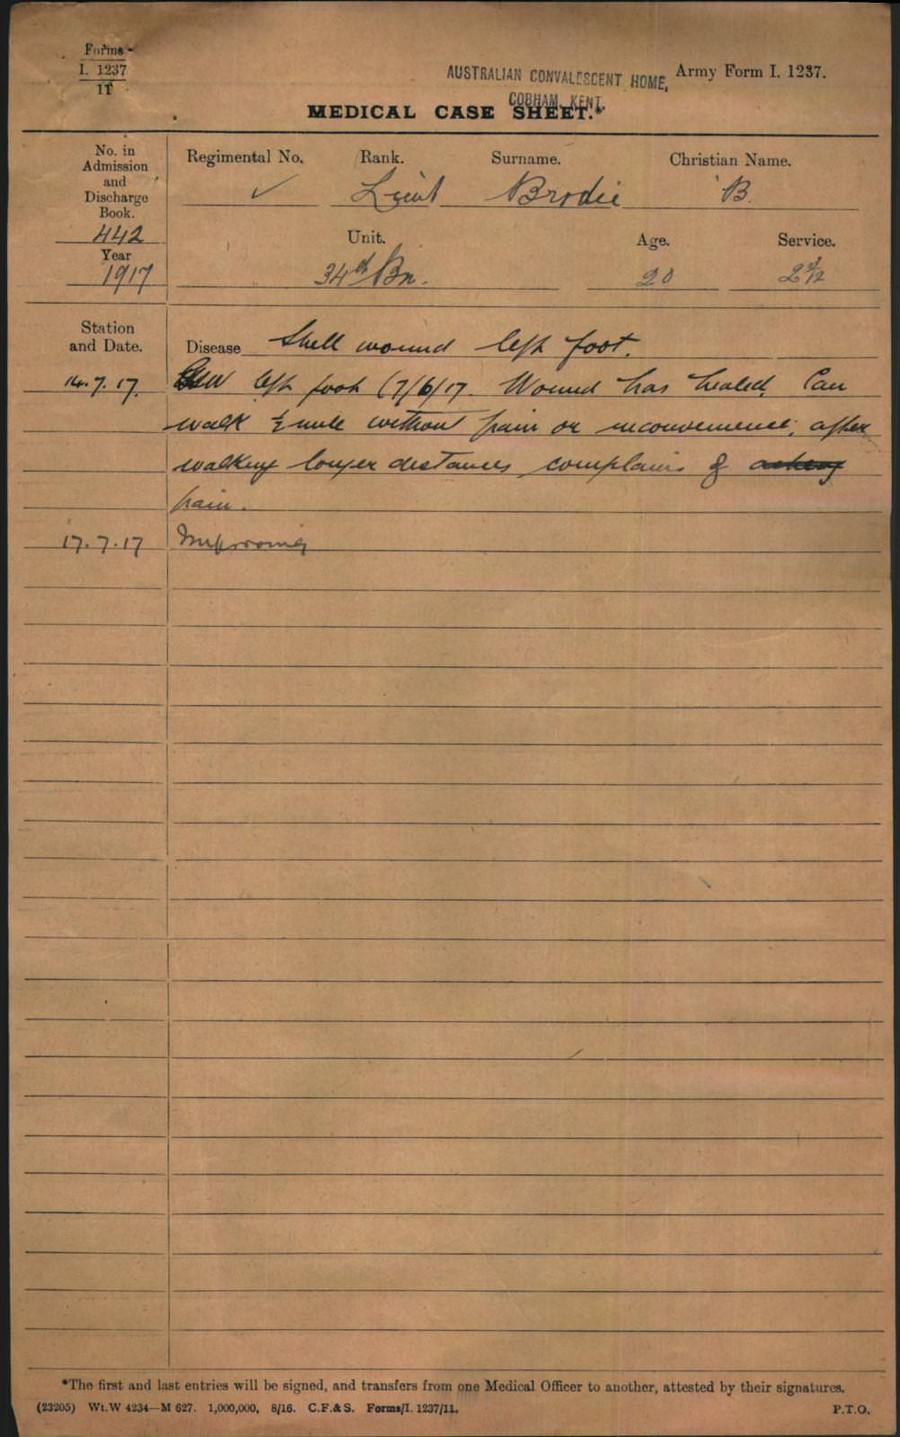 Forms
I. 1237
11
AUSTRALIAN CONVALESCENT HOME,
COBHAM, KENT.
Army Form I. 1237.
MEDICAL CASE SHEET.*
No. in Admission and Discharge Book.
442
Year
1917
Regimental No. Rank. Surname. Christian Name.
✓ Lieut Brodie B.
Unit. Age. Service.
34th Bn. 20 2
Station and Date.
Disease Shell wound left foot.
14.7.17. GSW left foot (7/6/17. Wound has healed. Can
walk ½ mile without pain or inconvenience, after
walking longer distances complains of aching
pain.
17.7.17 Improving
*The first and last entries will be signed, and transfers from one Medical Officer to another, attested by their signatures.
(23205) Wt.W 4234—M 627. 1,000,000, 8/16. C.F.&S. Forms/I. 1237/11. P.T.O.